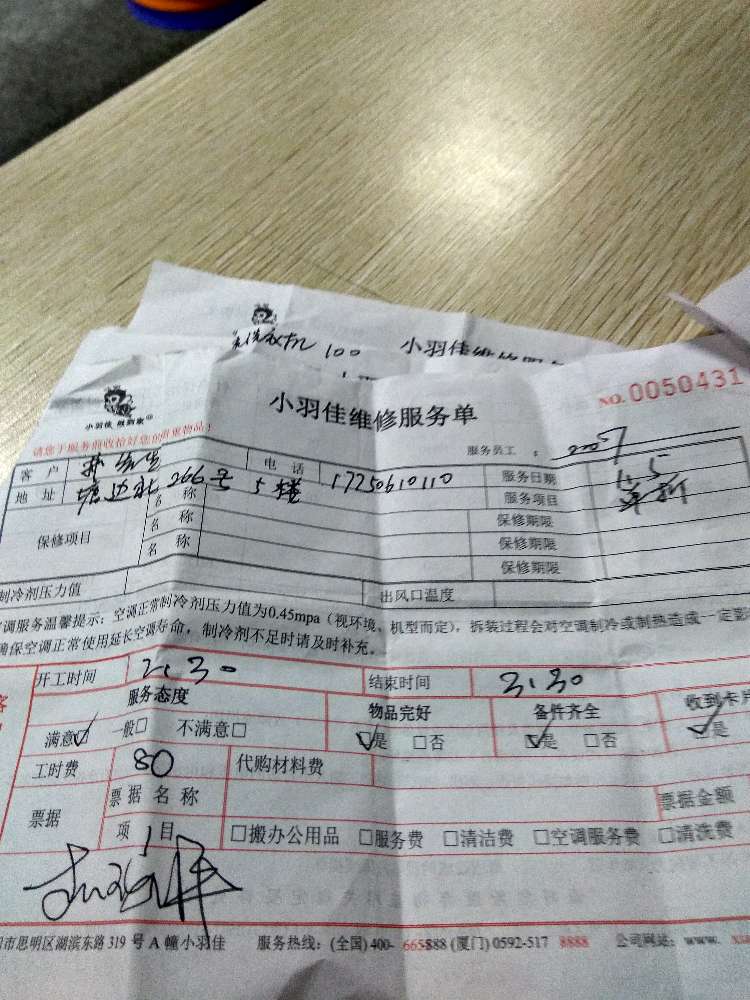 洗衣机 100 小羽佳维修服
小羽佳 做到家
小羽佳维修服务单
NO.0050431
请您于服务前收拾好您的贵重物品!
服务员工: 2007
客户 电话 17750610110 服务日期 1.5
地址 塘边社266号5楼 服务项目
保修项目 名称 保修期限
名称 保修期限
名称 保修期限
制冷剂压力值 出风口温度
调服务温馨提示:空调正常制冷剂压力值为0.45mpa(视环境、机型而定),拆装过程会对空调制冷或制热造成一定影
确保空调正常使用延长空调寿命,制冷剂不足时请及时补充。
客
开工时间 2:30 结束时间 3:30
服务态度 物品完好 备件齐全 收到卡片
满意☑ 一般□ 不满意□ ☑是 □否 ☑是 □否 ☑是
工时费 80 代购材料费
票据 票据名称 票据金额
项目 □搬办公用品 □服务费 □清洁费 □空调服务费 □清洗费
市思明区湖滨东路319号A幢小羽佳 服务热线:(全国)400- (厦门)0592-517 8888 公司网站:www.